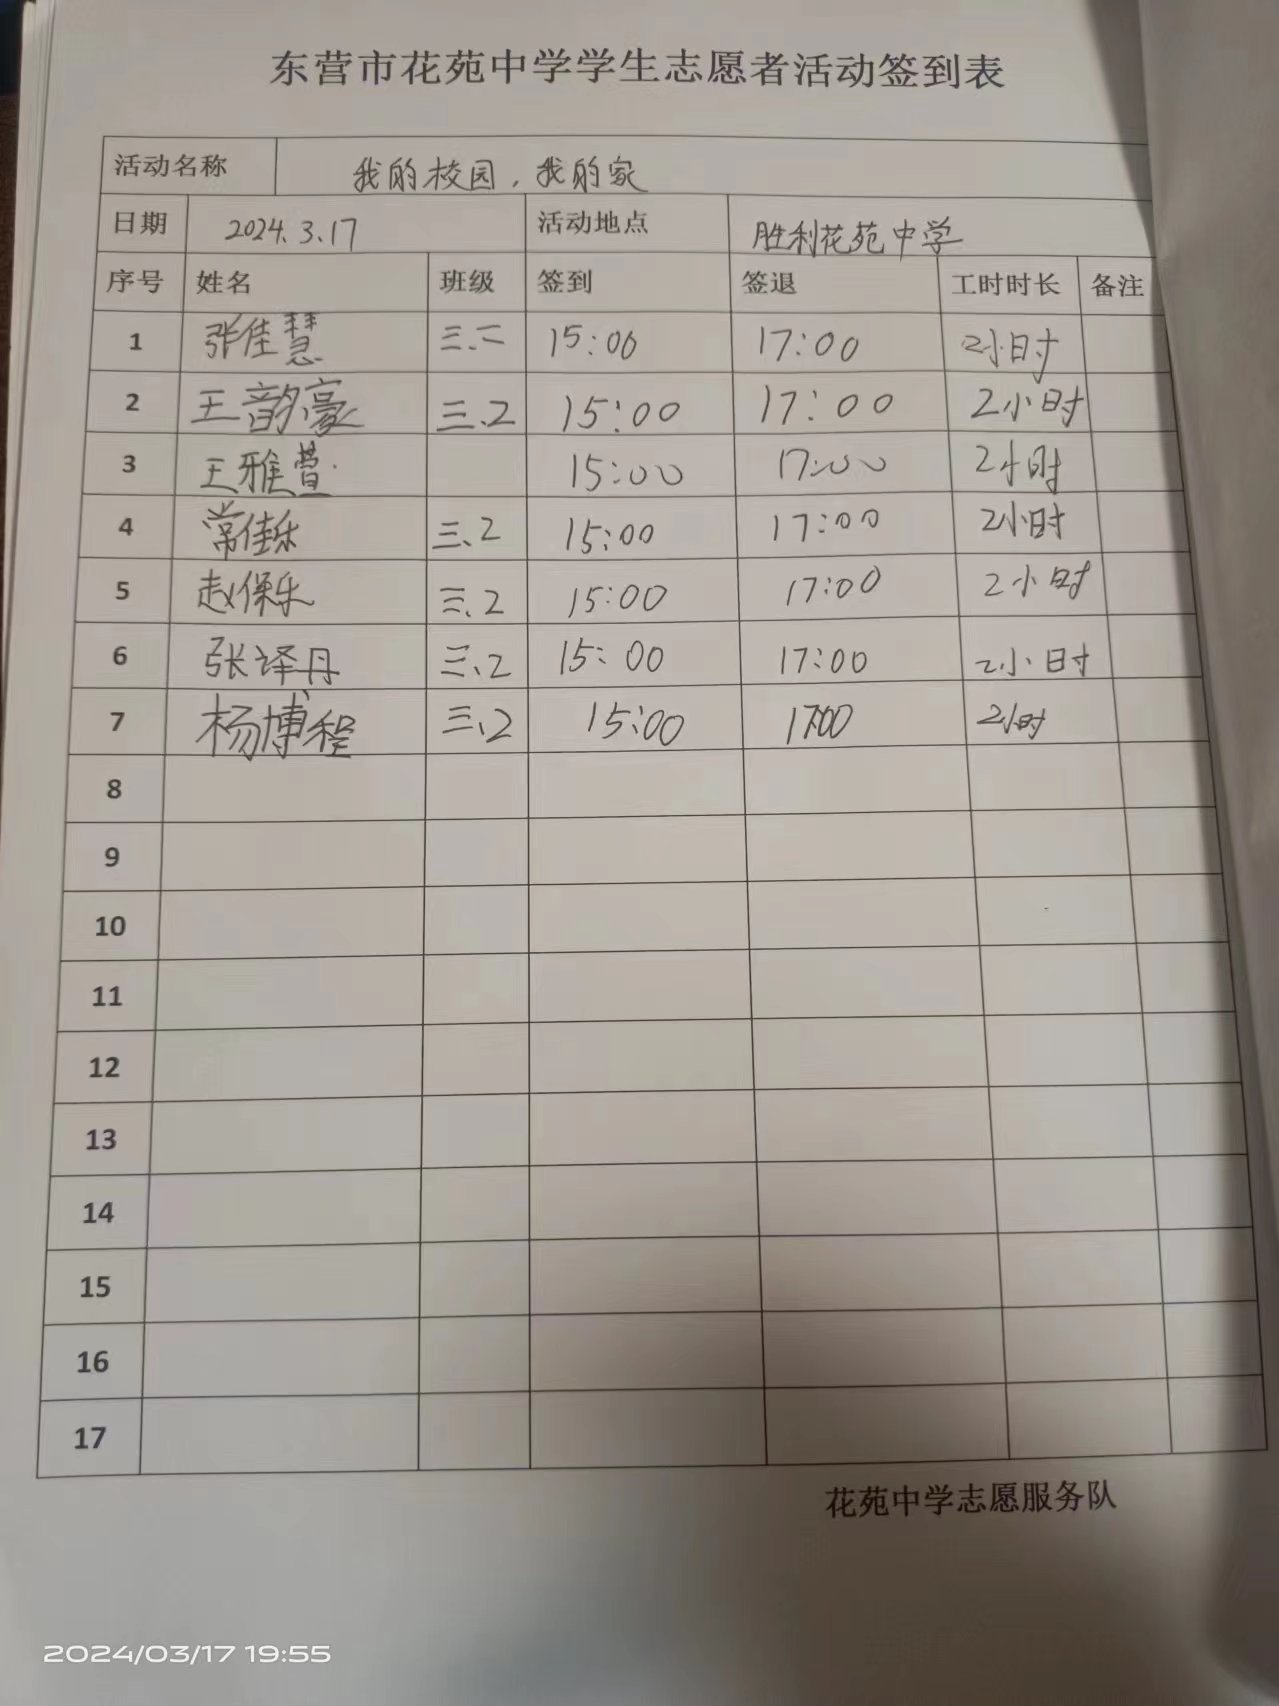 东营市花苑中学学生志愿者活动签到表
活动名称 我的校园，我的家
日期 2024.3.17 活动地点 胜利花苑中学
序号 姓名 班级 签到 签退 工时时长 备注
1 张佳慧 三.二 15:00 17:00 2小时
2 王韵豪 三.2 15:00 17:00 2小时
3 王雅萱 15:00 17:00 2小时
4 常佳乐 三、2 15:00 17:00 2小时
5 赵保乐 三、2 15:00 17:00 2小时
6 张译丹 三、2 15:00 17:00 2小时
7 杨博程 三、2 15:00 1700 2小时
8
9
10
11
12
13
14
15
16
17
花苑中学志愿服务队
2024/03/17 19:55